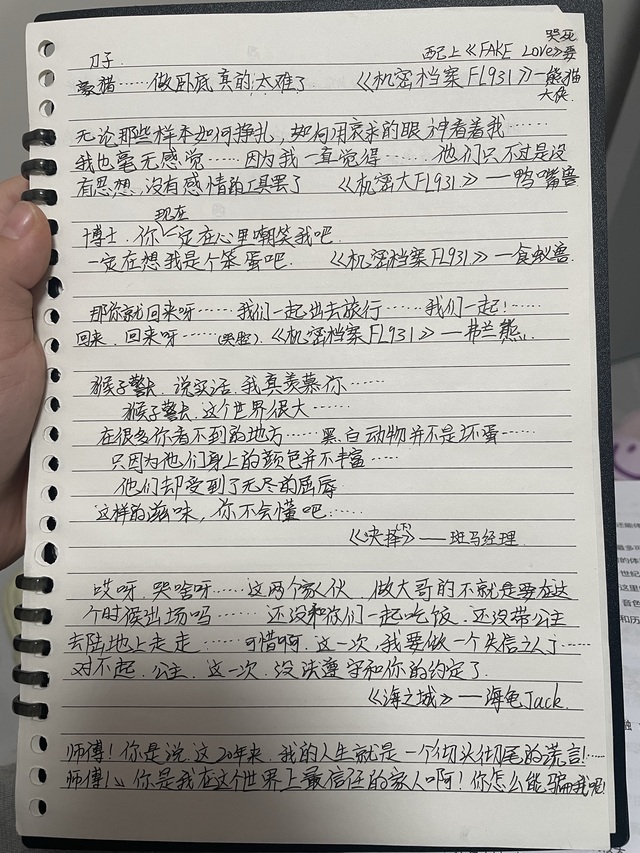 哭死
刀子 配上《FAKE Love》要
豪猎……做卧底真的太难了 《机密档案FL931》—熊猫
大侠
无论那些样本如何挣扎,如何用哀求的眼神看着我……
我也毫无感觉……因为我一直觉得……他们只不过是没
有思想,没有感情的工具罢了 《机密大FL931》—鸭嘴兽
现在
博士,你一定在心里嘲笑我吧.
一定在想我是个笨蛋吧. 《机密档案FL931》—食蚁兽.
那你就回来呀……我们一起出去旅行……我们一起!……
回来,回来呀……(哭腔).《机密档案FL931》—弗兰熊.
猴子警长,说实话,我真羡慕你……
猴子警长,这个世界很大……
在很多你看不到的地方……黑白动物并不是坏蛋……
只因为他们身上的颜色并不丰富……
他们却受到了无尽的屈辱
这样的滋味,你不会懂吧……
《抉择(下)》—斑马经理.
哎呀,哭啥呀……这两个家伙,做大哥的不就是要在这
个时候出场吗……还没和你们一起吃饭,还没带公主
去陆地上走走……可惜啊,这一次,我要做一个失信之人了……
对不起,公主,这一次,没法遵守和你的约定了.
《海之城》—海龟Jack.
师傅!你是说,这20年来,我的人生就是一个彻头彻尾的谎言!……
师傅!、你是我在这个世界上最信任的家人啊!你怎么能骗我呢!